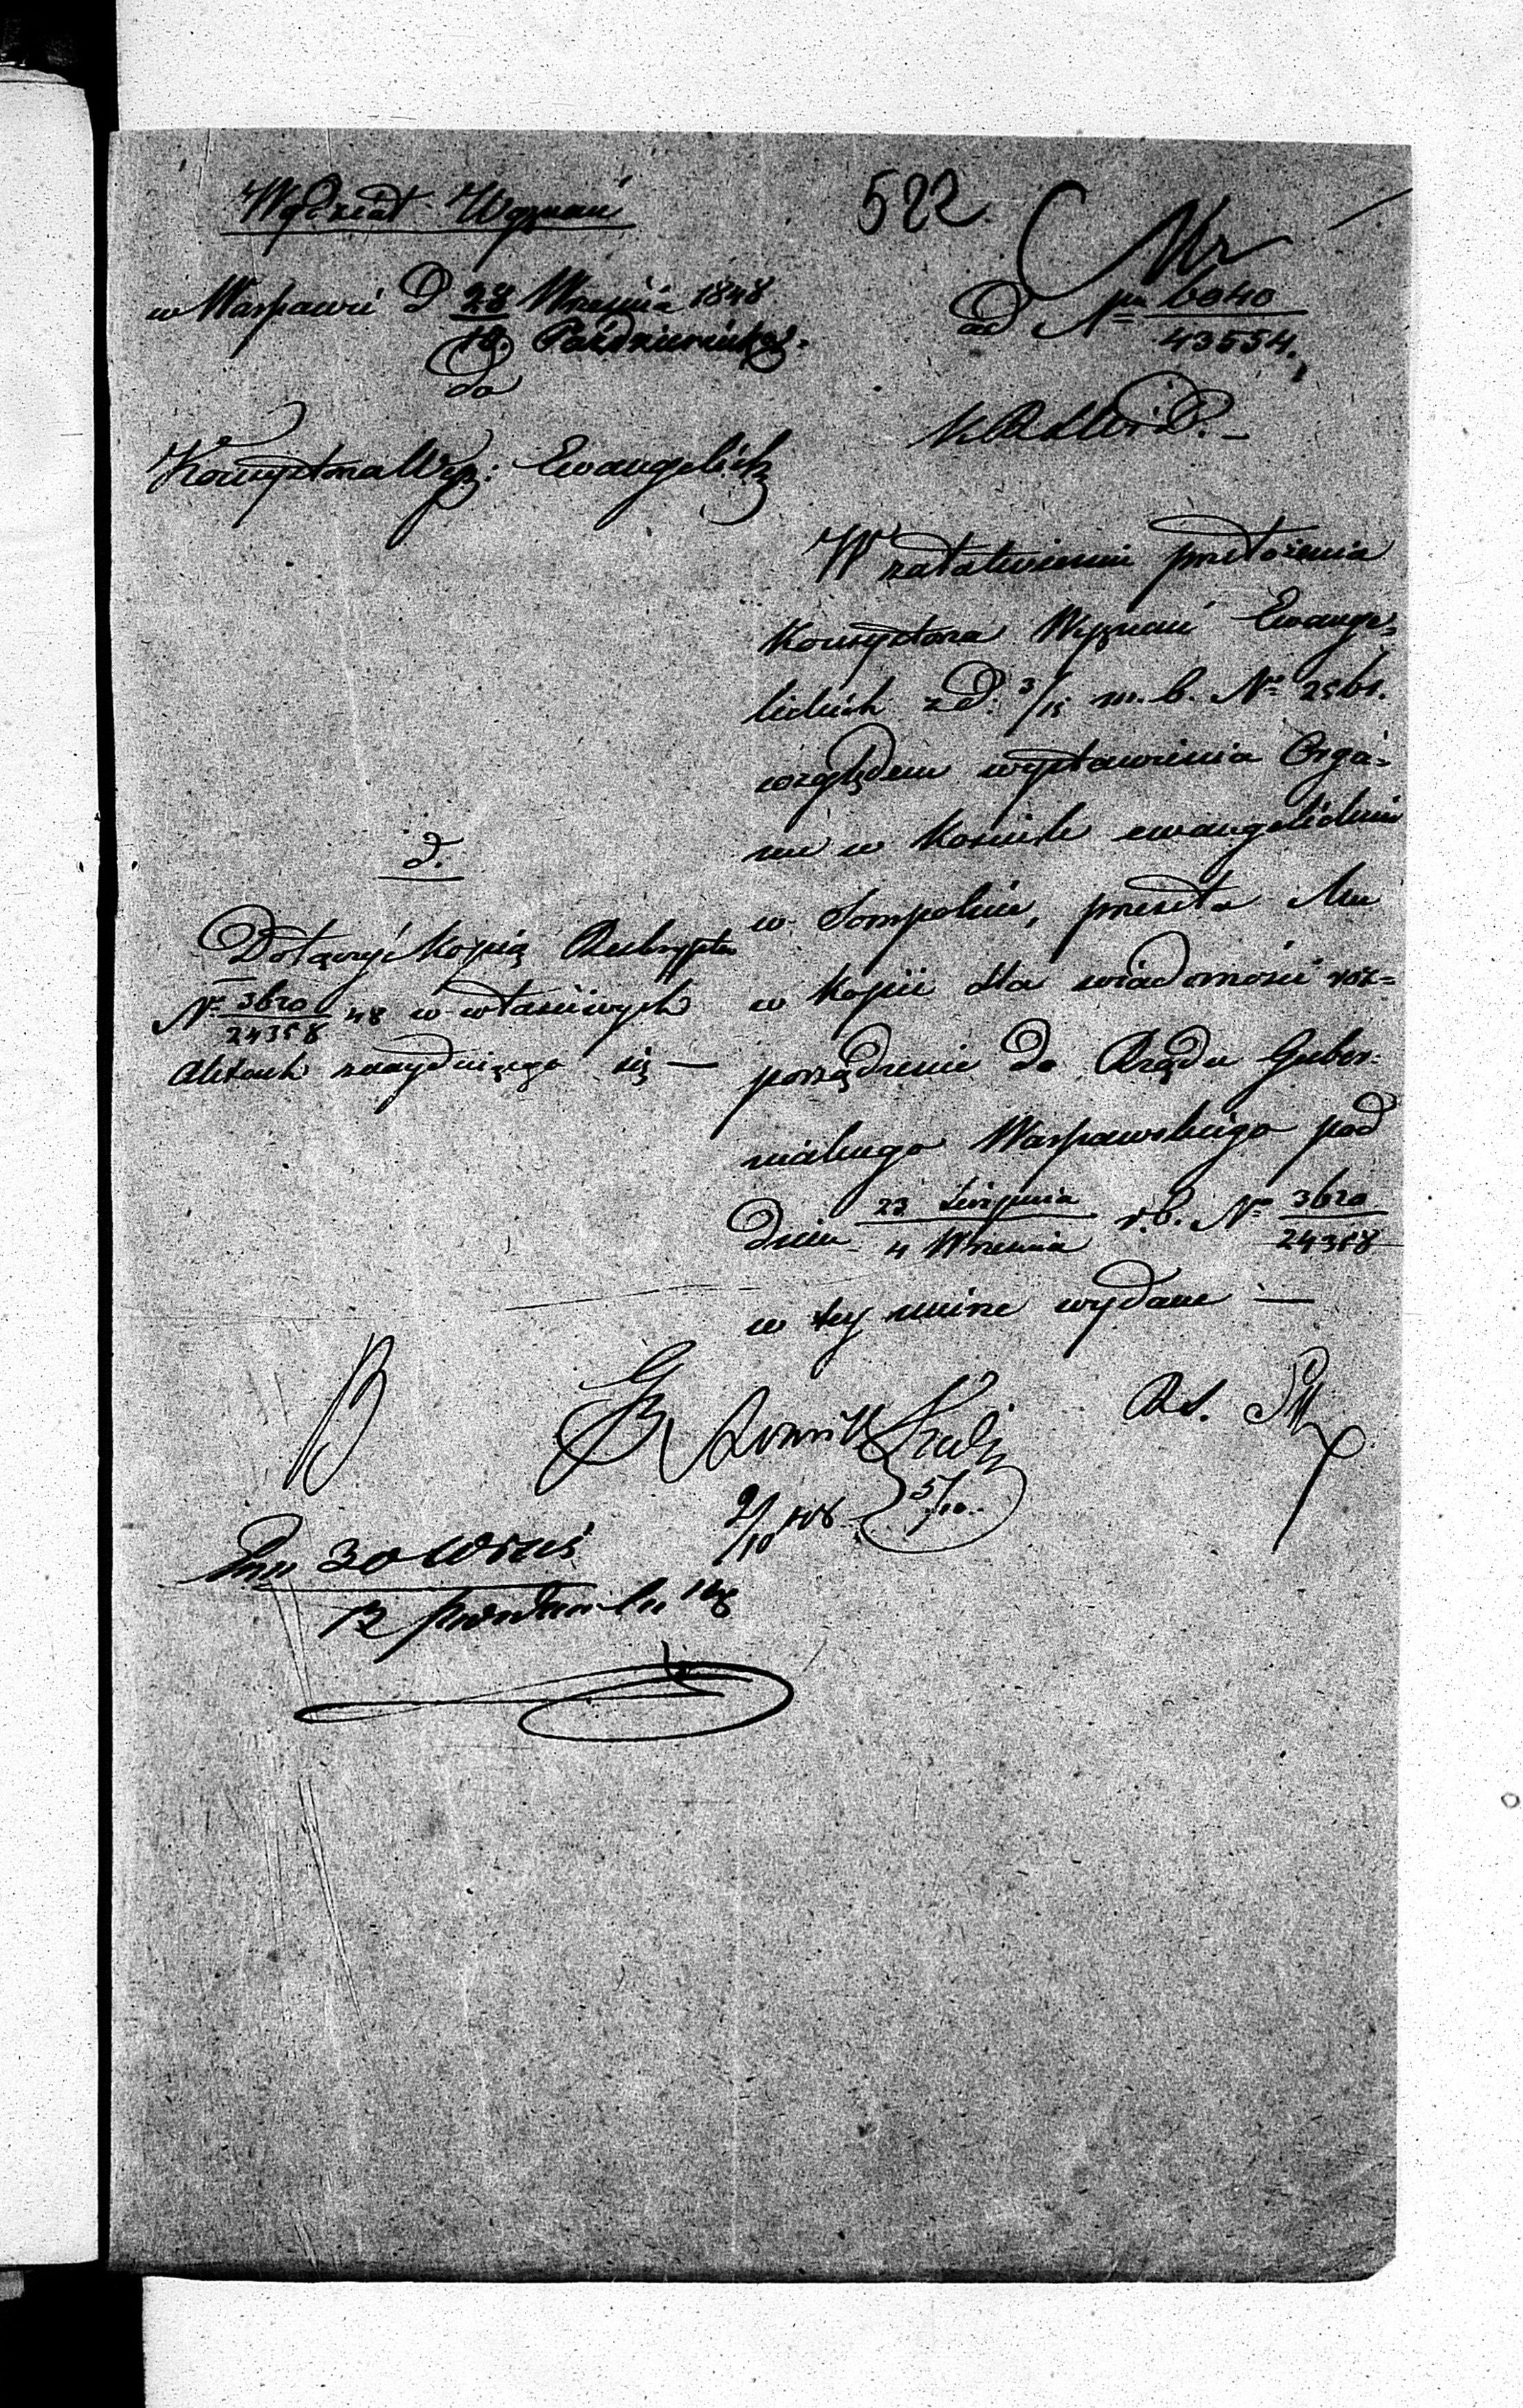 Wydział Wyznań
522
w Warszawie D 28 Września 1848
10 Października
ad Nr 6040
43554.
do
K R S W i D.
Konsystorza Wyz: Ewangelick
W załatwieniu przełożenia
Konsystorza Wyznań Ewange-
lickich z d. 3/15 m. b. Nr 2561.
względem wystawienia Orga-
nu w Kościele ewangelickim
w Sompolnie, przesyła Mu
w Kopii dla wiadomości roz-
porządzenie do Rządu Guber-
nialnego Warszawskiego pod
dniem 23 Sierpnia
4 Września r. b. Nr 3620
24358
w tey mierze wydane —
d.
Dołączyć Kopią Reskryptu
Nr 3620
24358 48 w właściwych
Aktach znayduiącego się —
9/10 48
5/10
30 Wrześ
12 Październ